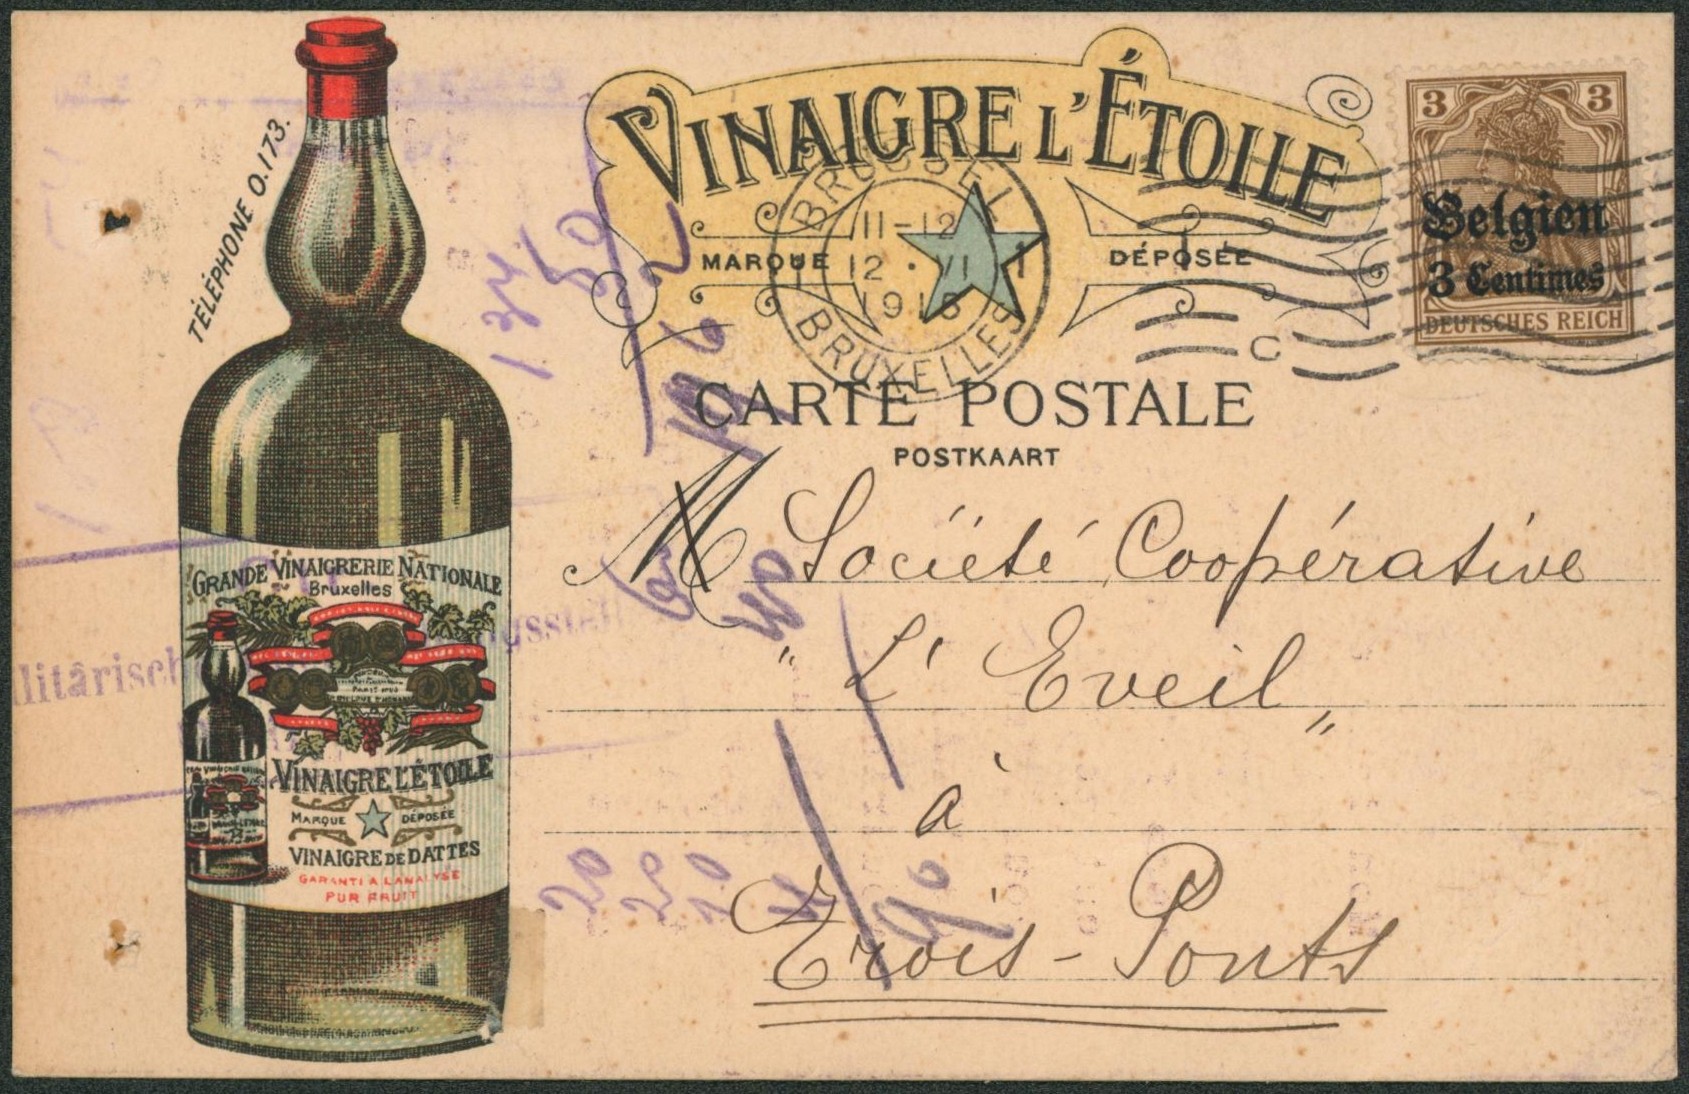 TÉLÉPHONE 0.173.
VINAIGRE L'ÉTOILE
MARQUE DÉPOSÉE
BRUSSEL
11-12
12 · VI
BRUXELLES
1
C
3 3
Belgien
3 Centimes
DEUTSCHES REICH
CARTE POSTALE
POSTKAART
M Société Coopérative
" L'Eveil "
à
Trois-Ponts
GRANDE VINAIGRERIE NATIONALE
Bruxelles
VINAIGRE L'ÉTOILE
MARQUE DÉPOSÉE
VINAIGRE DE DATTES
GARANTI A L'ANALYSE
PUR FRUIT
134
50
196 2
20
20
20
90